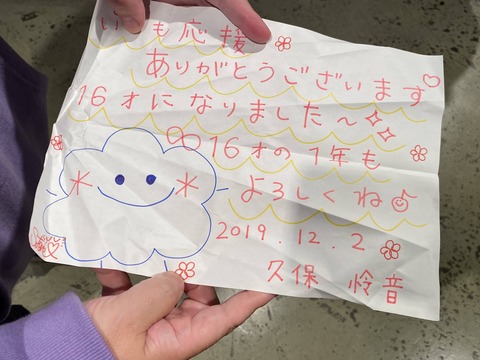 いつも応援
ありがとうございます
16才になりました〜
16才の1年も
よろしくね
2019.12.2
久保 怜音